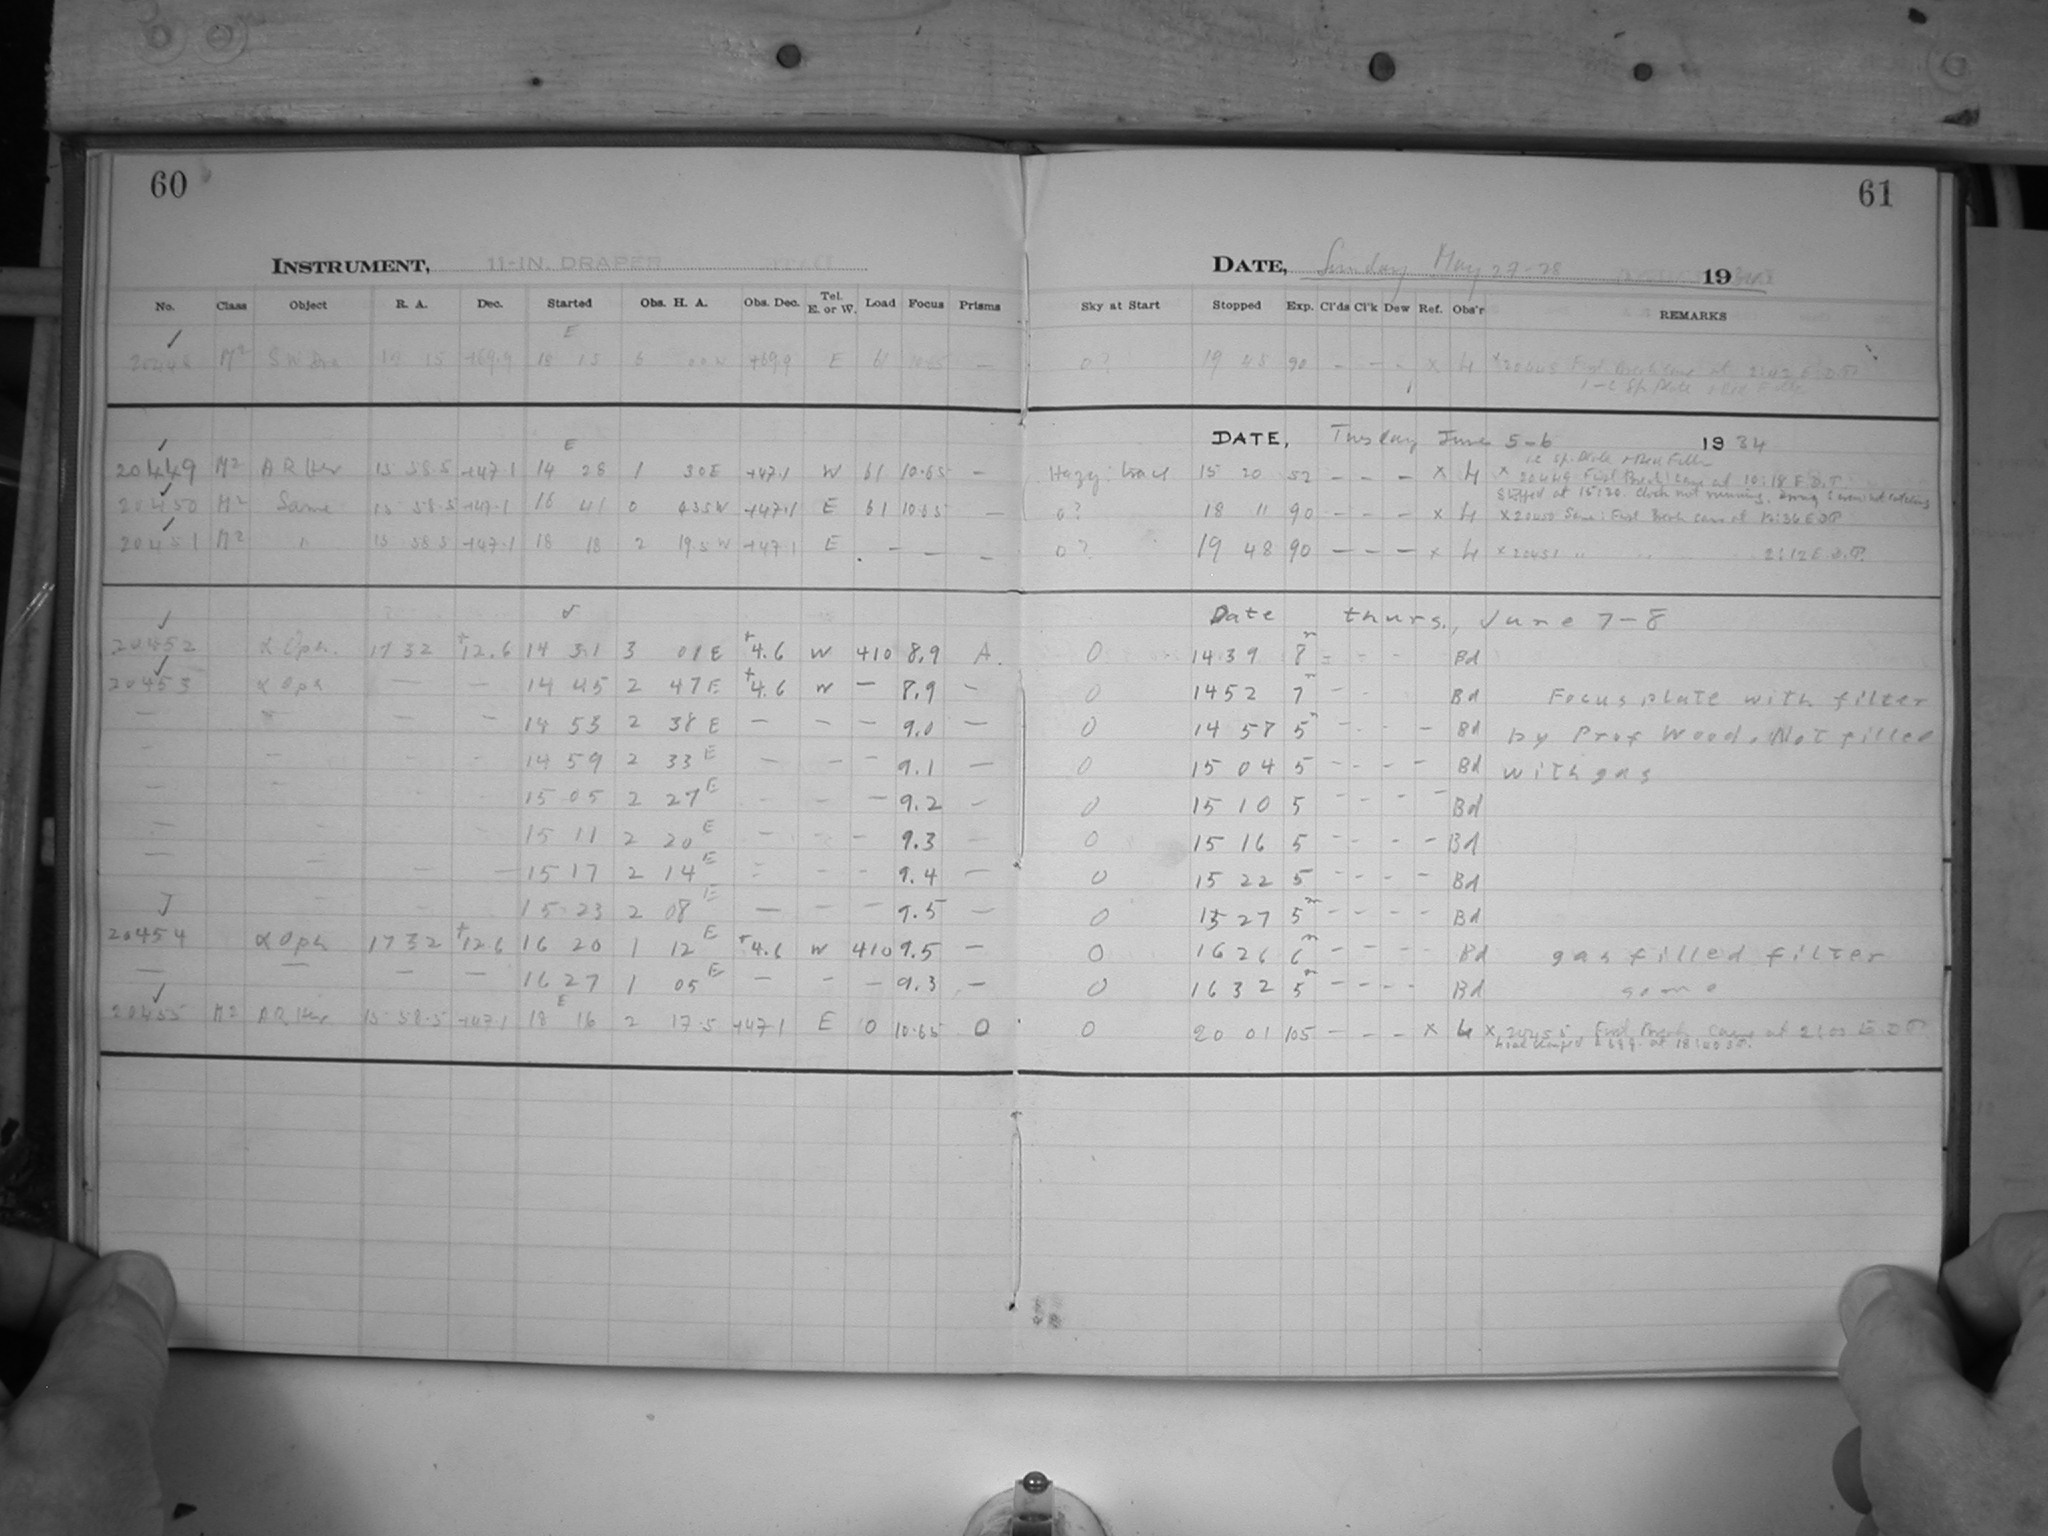 60
61
INSTRUMENT, 11-IN. DRAPER
DATE, Sunday May 27-28 19
No. Class Object R. A. Dec. Started Obs. H. A. Obs. Dec. Tel. E. or W. Load Focus Prisms Sky at Start Stopped Exp. Cl'ds Cl'k Dew Ref. Obs'r REMARKS
20448 M2 15 +69.9 18 15 6 00 W +69.9 E 61 10.65 — 0? 19 45 90 – – – x x 20448 First Break came at 2:42 E.D.T.
DATE, Tuesday June 5-6 1934
20449 M2 AR Her 15 58.5 +47.1 14 28 1 30 E +47.1 W 61 10.65 — Hazy: 15 20 52 – – – x x 20449 First Break came at 10:18 E.D.T.
Stopped at 15:20. Clock not running.
20450 M2 Same 15 58.5 +47.1 16 41 0 43.5 W +47.1 E 61 10.65 — 0? 18 11 90 – – – x x 20450 Same: First Break came at E.D.T.
20451 M2 " 15 58.5 +47.1 18 18 2 19.5 W +47.1 E – – – 0? 19 48 90 – – – x x 20451 " " 2:12 E.D.T.
Date thurs., June 7-8
20452 α Oph. 17 32 +12.6 14 31 3 01 E +4.6 W 410 8.9 A. 0 14 39 8m – – – Bd
20453 α Oph — — 14 45 2 47 E +4.6 W — 8.9 – 0 14 52 7m – – Bd Focus plate with filter
— — — — 14 53 2 38 E — — — 9.0 — 0 14 58 5m – – – Bd by Prof Wood. Not filled
– – – – 14 59 2 33 E — — — 9.1 — 0 15 04 5 – – – – Bd with gas
– – 15 05 2 27 E – – — 9.2 – 0 15 10 5 – – – – Bd
– – – 15 11 2 20 E – – – 9.3 – 0 15 16 5 – – – – Bd
– – – – 15 17 2 14 E – – – 9.4 – 0 15 22 5 – – – – Bd
– – 15 23 2 08 E — – — 9.5 – 0 15 27 5m – – – – Bd
20454 α Oph 17 32 +12.6 16 20 1 12 E +4.6 W 410 9.5 – 0 16 26 6m – – – – Bd gas filled filter
— — — — 16 27 1 05 E – – – 9.3 – 0 16 32 5m – – – – Bd same
20455 M2 AR Her 15 58.5 +47.1 18 16 2 17.5 +47.1 E 0 10.65 0 0 20 01 105 – – – x x 20455 First Break came at 2:03 E.D.T.